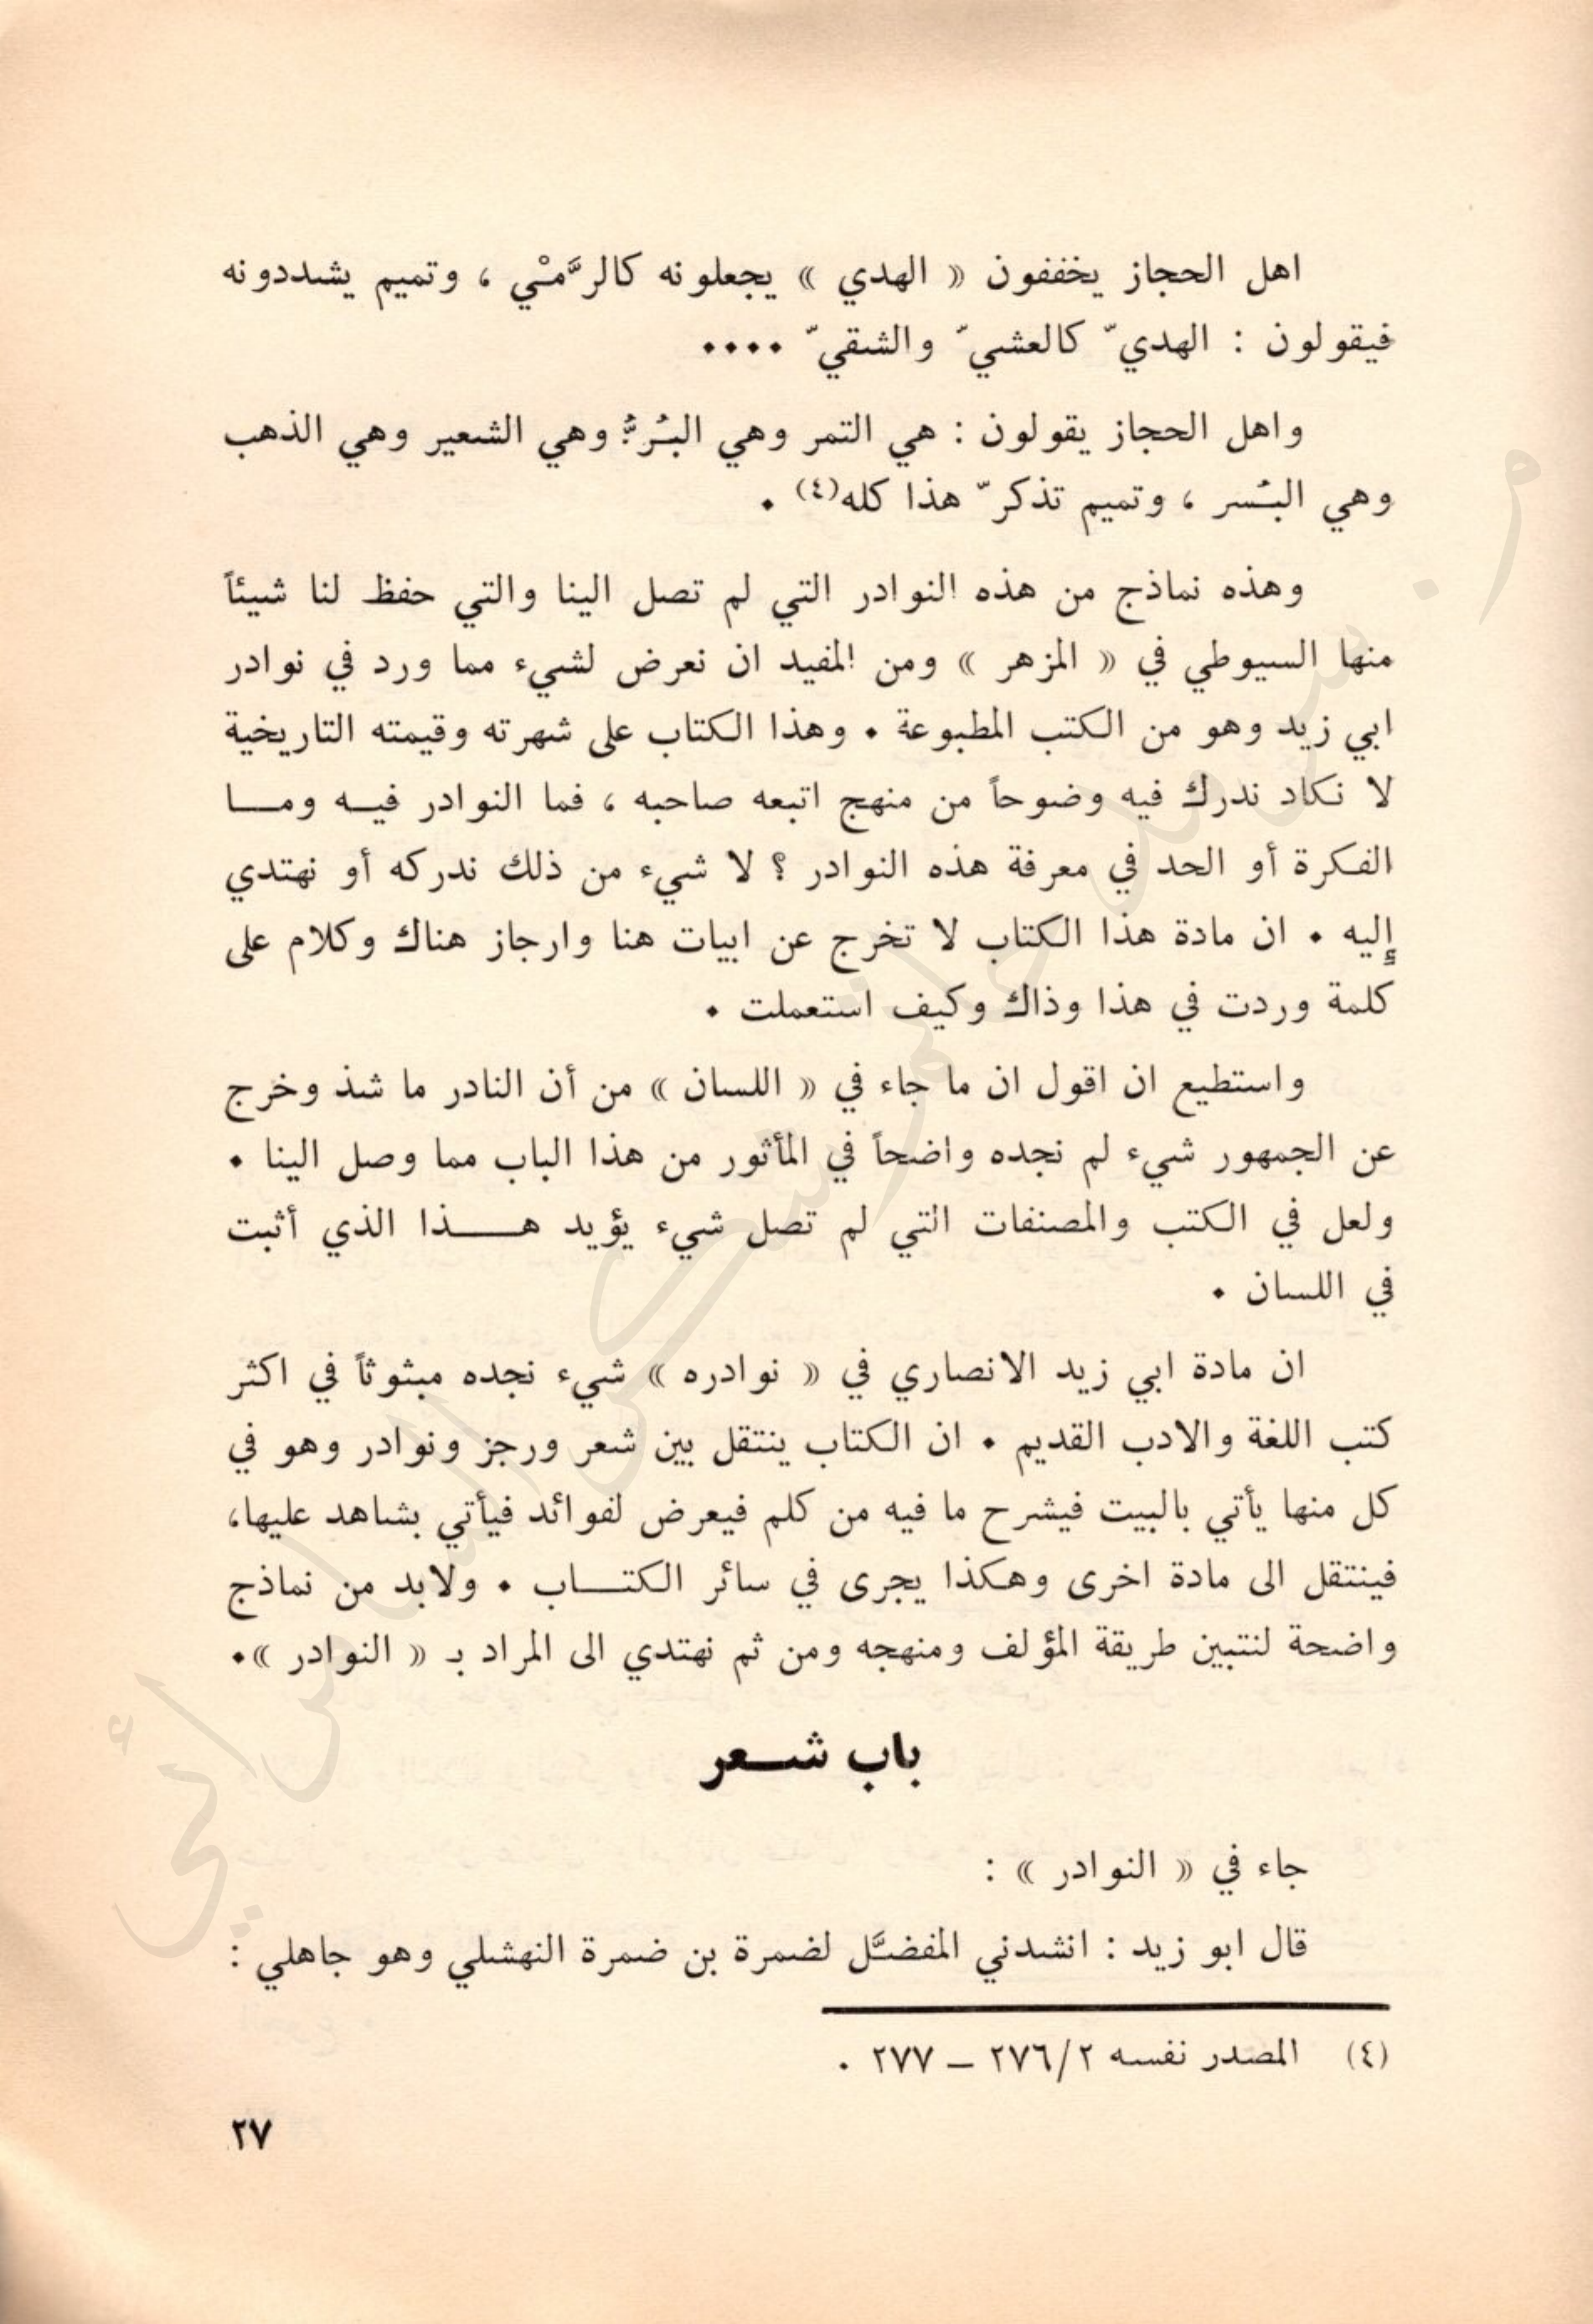 اهل الحجاز يخففون « الهدي » يجعلونه كالرَّمْي ، وتميم يشددونه
فيقولون : الهديّ كالعشيّ والشقيّ ....
واهل الحجاز يقولون : هي التمر وهي البُرُّ وهي الشعير وهي الذهب
وهي البُسر ، وتميم تذكرّ هذا كله(٤) .
وهذه نماذج من هذه النوادر التي لم تصل الينا والتي حفظ لنا شيئاً
منها السيوطي في « المزهر » ومن المفيد ان نعرض لشيء مما ورد في نوادر
ابي زيد وهو من الكتب المطبوعة . وهذا الكتاب على شهرته وقيمته التاريخية
لا نكاد ندرك فيه وضوحاً من منهج اتبعه صاحبه ، فما النوادر فيه وما
الفكرة أو الحد في معرفة هذه النوادر ؟ لا شيء من ذلك ندركه أو نهتدي
إليه . ان مادة هذا الكتاب لا تخرج عن ابيات هنا وارجاز هناك وكلام على
كلمة وردت في هذا وذاك وكيف استعملت .
واستطيع ان اقول ان ما جاء في « اللسان » من أن النادر ما شذ وخرج
عن الجمهور شيء لم نجده واضحاً في المأثور من هذا الباب مما وصل الينا .
ولعل في الكتب والمصنفات التي لم تصل شيء يؤيد هذا الذي أثبت
في اللسان .
ان مادة ابي زيد الانصاري في « نوادره » شيء نجده مبثوثاً في اكثر
كتب اللغة والادب القديم . ان الكتاب ينتقل بين شعر ورجز ونوادر وهو في
كل منها يأتي بالبيت فيشرح ما فيه من كلم فيعرض لفوائد فيأتي بشاهد عليها،
فينتقل الى مادة اخرى وهكذا يجرى في سائر الكتاب . ولابد من نماذج
واضحة لنتبين طريقة المؤلف ومنهجه ومن ثم نهتدي الى المراد بـ « النوادر ».
باب شعر
جاء في « النوادر » :
قال ابو زيد : انشدني المفضَّل لضمرة بن ضمرة النهشلي وهو جاهلي :
(٤) المصدر نفسه ٢/ ٢٧٦ – ٢٧٧ .
٢٧